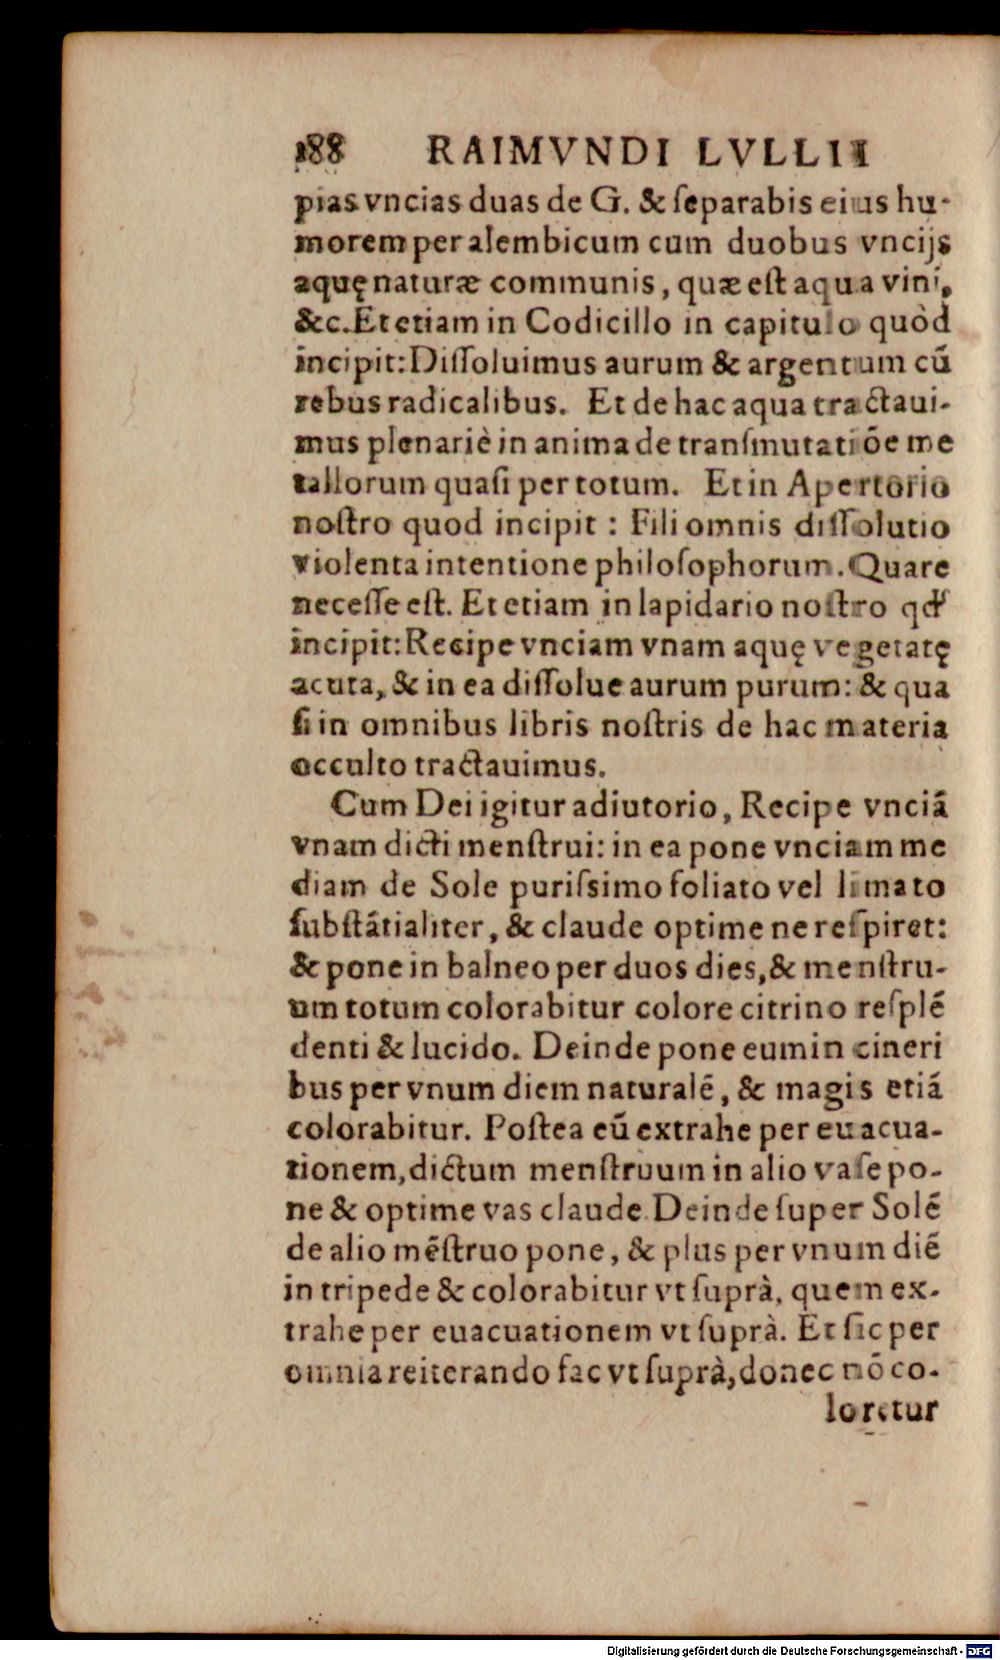 188 RAIMVNDI LVLLII
pias vncias duas de G. & ſeparabis eius hu-
morem per alembicum cum duobus vncijs
aquę naturæ communis, quæ eſt aqua vini,
&c. Et etiam in Codicillo in capitulo quòd
incipit: Diſſoluimus aurum & argentum cū
rebus radicalibus. Et de hac aqua tractaui-
mus plenariè in anima de tranſmutatiōe me
tallorum quaſi per totum. Et in Apertorio
noſtro quod incipit : Fili omnis diſſolutio
violenta intentione philoſophorum. Quare
neceſſe eſt. Et etiam in lapidario noſtro qđ
incipit: Recipe vnciam vnam aquę vegetatę
acuta, & in ea diſſolue aurum purum: & qua
ſi in omnibus libris noſtris de hac materia
occulto tractauimus.
Cum Dei igitur adiutorio, Recipe vnciā
vnam dicti menſtrui: in ea pone vnciam me
diam de Sole puriſsimo foliato vel limato
ſubſtātialiter, & claude optime ne reſpiret:
& pone in balneo per duos dies, & menſtru-
um totum colorabitur colore citrino reſplē
denti & lucido. Deinde pone eum in cineri
bus per vnum diem naturalē, & magis etiā
colorabitur. Poſtea eū extrahe per euacua-
tionem, dictum menſtruum in alio vaſe po-
ne & optime vas claude. Deinde ſuper Solē
de alio mēſtruo pone, & plus per vnum diē
in tripede & colorabitur vt ſuprà, quem ex-
trahe per euacuationem vt ſuprà. Et ſic per
omnia reiterando fac vt ſuprà, donec nō co-
loretur
Digitalisierung gefördert durch die Deutsche Forschungsgemeinschaft - DFG